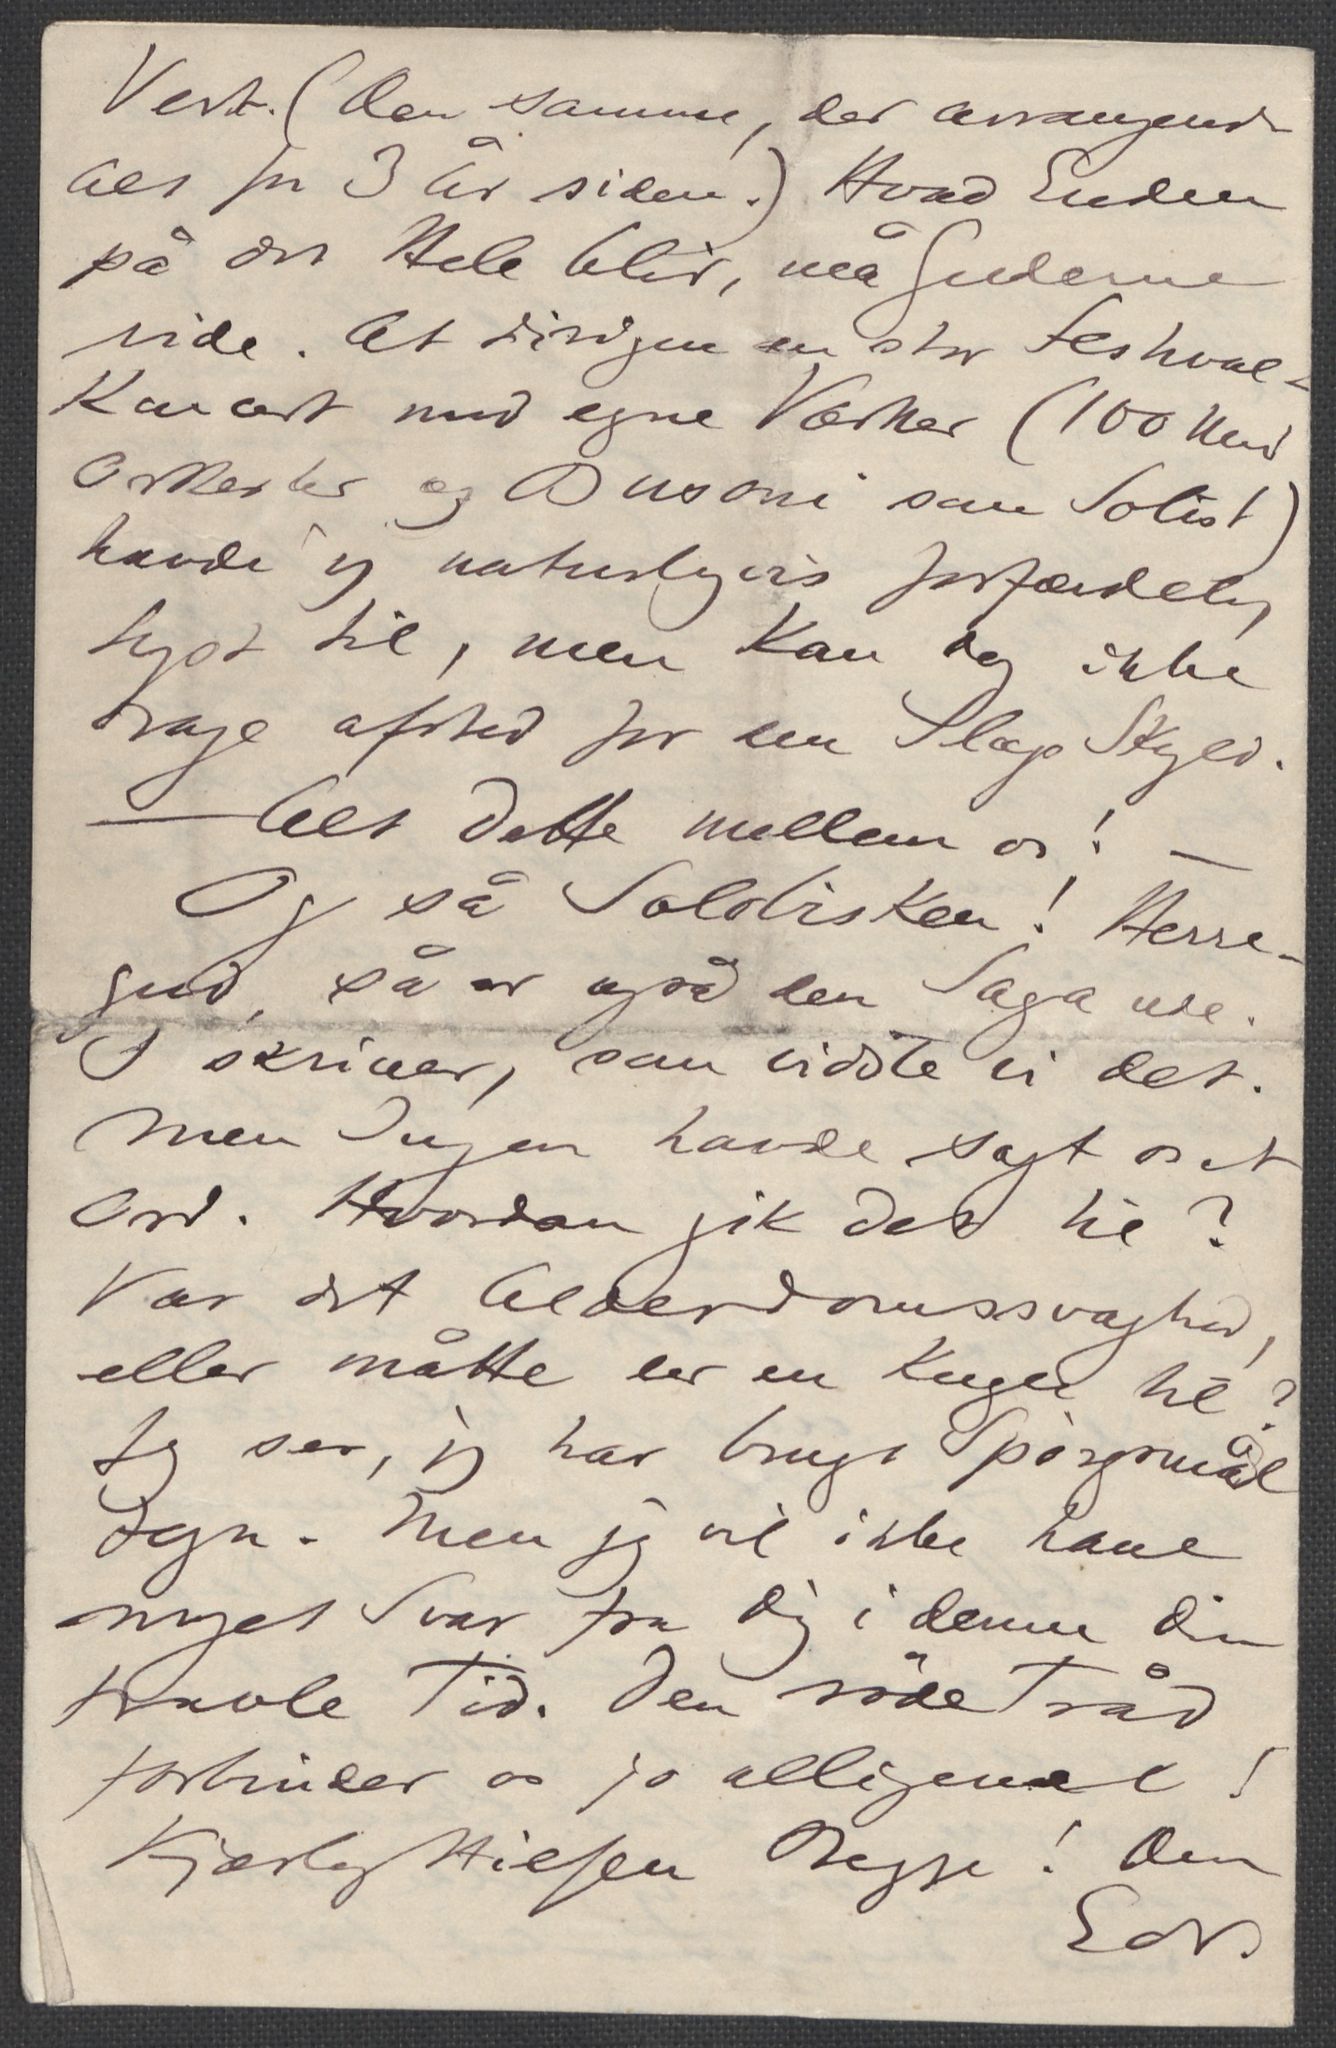 Vert. (Den samme, der arrangerede
Alt for 3 År siden.) Hvad Enden
på det Hele blir, må Guderne
vide. At dirigere en stor Festival-
Koncert med egne Værker (100 Mand
Orkester og Busoni som Solist)
havde jeg naturligvis forfærdelig
Lyst til, men Kan dog ikke
drage afsted for den Slags Skyld.
— Alt dette mellem os! —
Og så Soldisken! Herre-
gud, så er også den Saga ude.
I skriver, som vidste vi det.
Men Ingen havde sagt os et
Ord. Hvordan gik det til?
Var det Alderdomssvaghed,
eller måtte der en Kugle til?
Jeg ser, jeg har brugt Spörgsmåls
tegn. Men jeg vil ikke have
noget Svar fra Dig i denne Din
travle Tid. Den röde Tråd
forbinder os jo alligevel!
Kjærlig Hilsen Begge! Din
Edv.